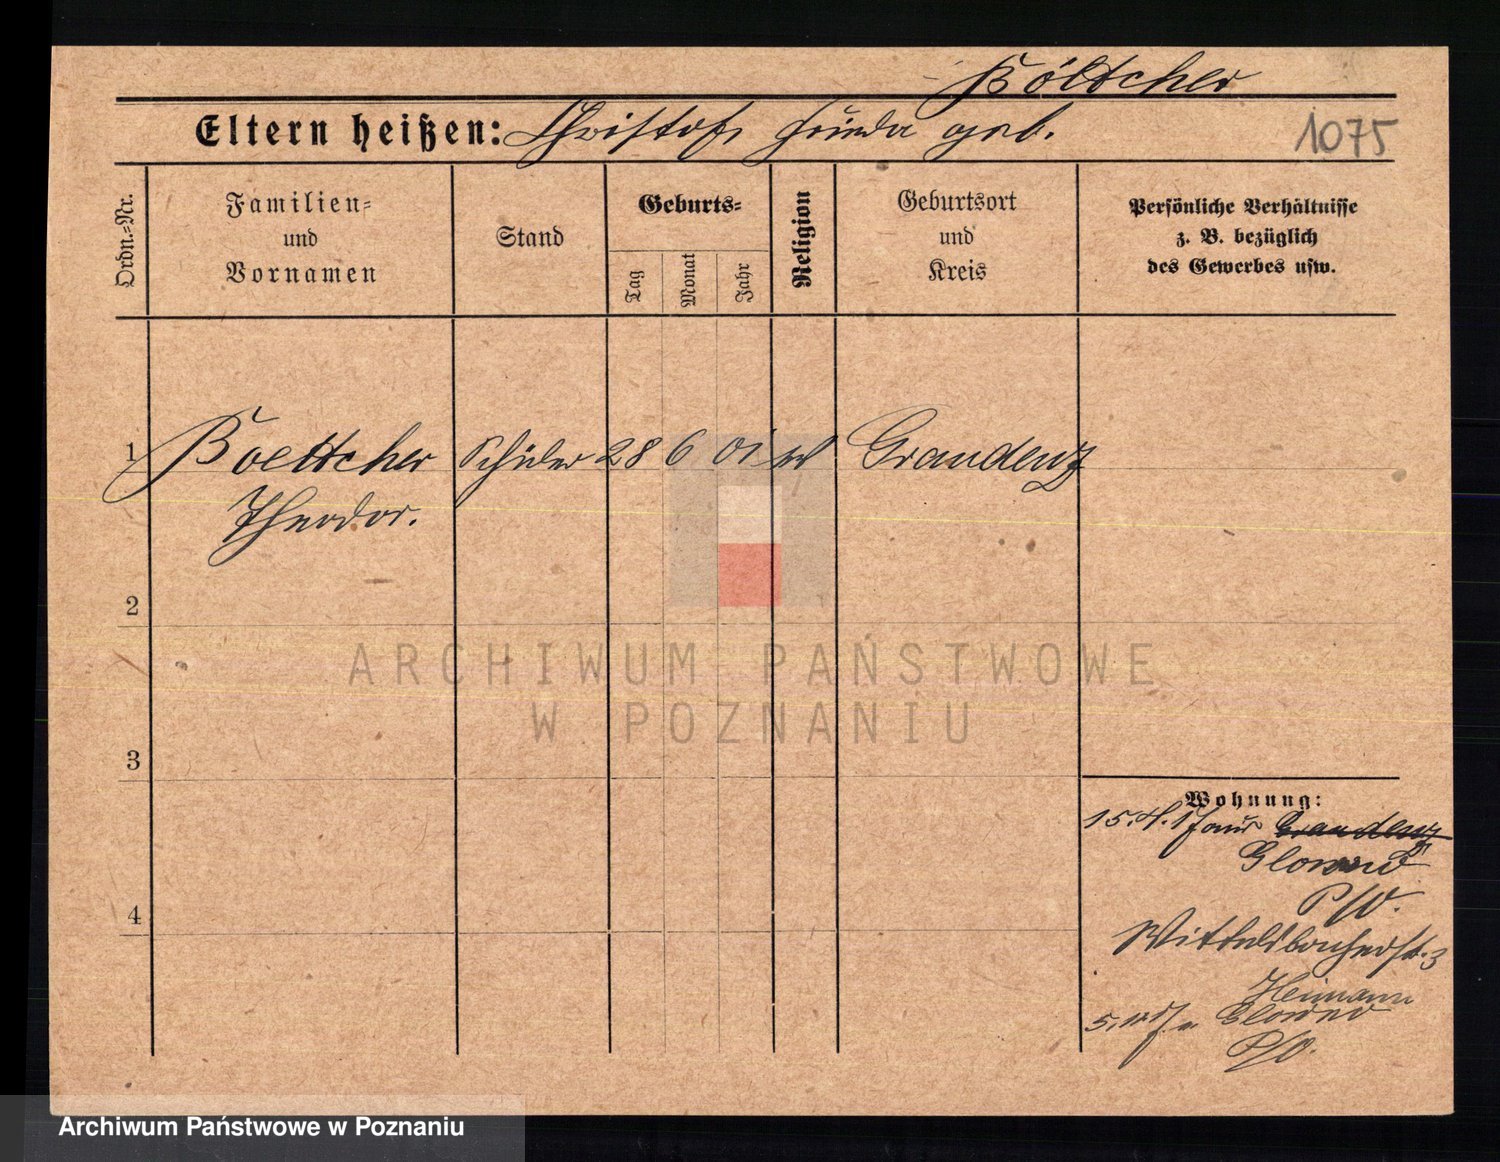 Böttcher
Eltern heißen: Christof, Frieda geb.
1075
Ordn.=Nr.
Familien=
und
Vornamen
Stand
Geburts=
Tag
Monat
Jahr
Religion
Geburtsort
und
Kreis
Persönliche Verhältnisse
z. B. bezüglich
des Gewerbes usw.
1 Boettcher Schüler 28 6 01 Graudenz
Theodor.
2
ARCHIWUM PAŃSTWOWE
W POZNANIU
3
Wohnung:
15.4.17 aus Graudenz
Glowno
P/O.
4
Wittelsbacherst. 3
Heimann
Glowno
P/O.
Archiwum Państwowe w Poznaniu